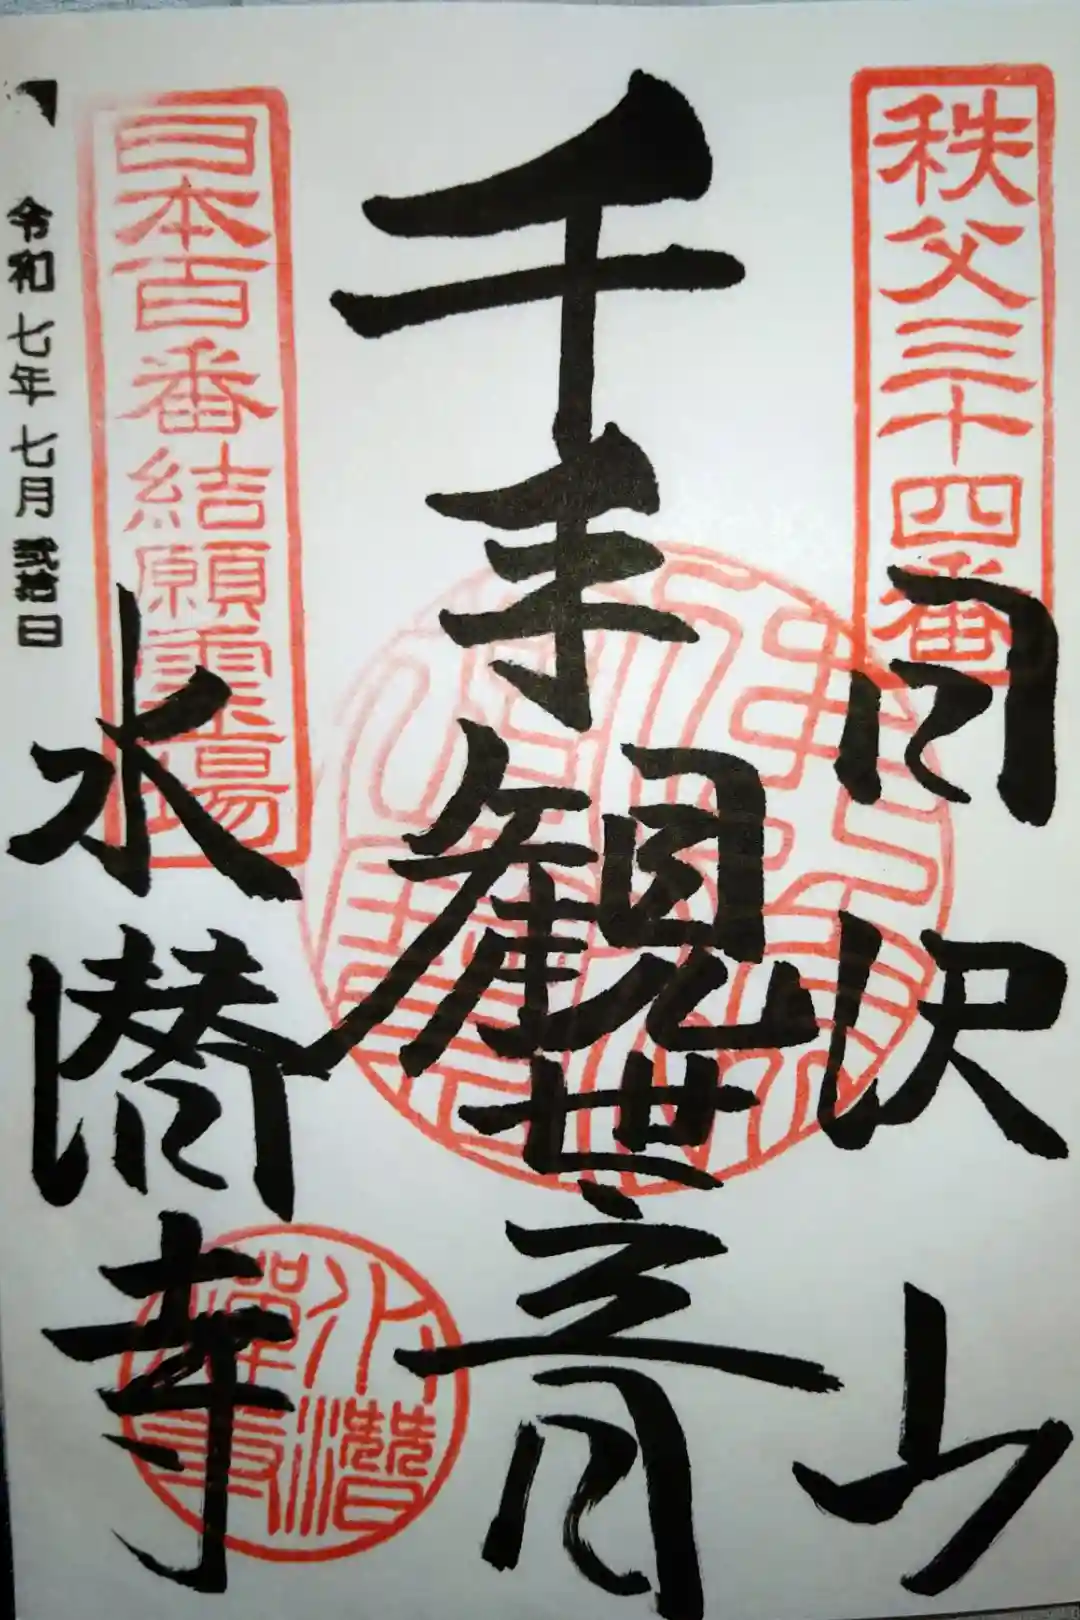 秩父三十四番
日沢山
千手観世音
日本百番結願霊場
水潜寺
水潛禪寺
令和七年七月弐拾日